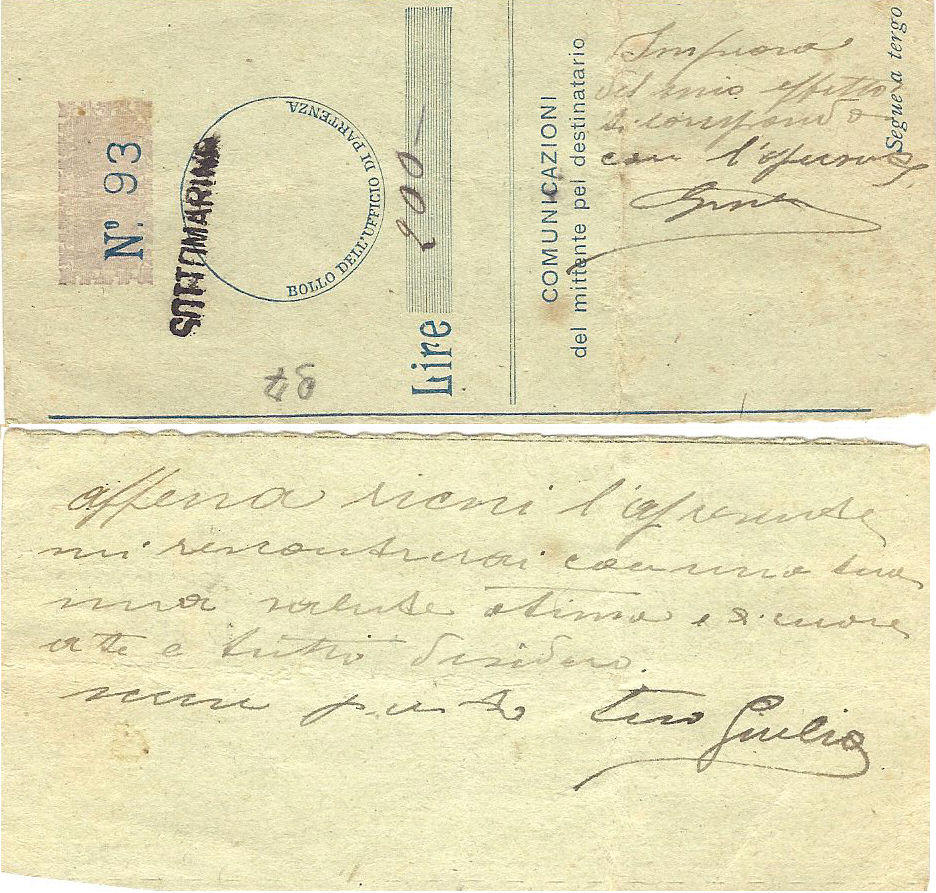 Nº. 93
SOTTOMARINA
BOLLO DELL'UFFICIO DI PARTENZA
97
Lire 200-
COMUNICAZIONI
del mittente pel destinatario
del mio affetto
ti corrispondo
con l'apresente
Segue a tergo
appena ricevi l'apresente
mi rescontrerai con una tua
mia salute otima e di cuore
a te e tutti desidero.
tuo Giulio